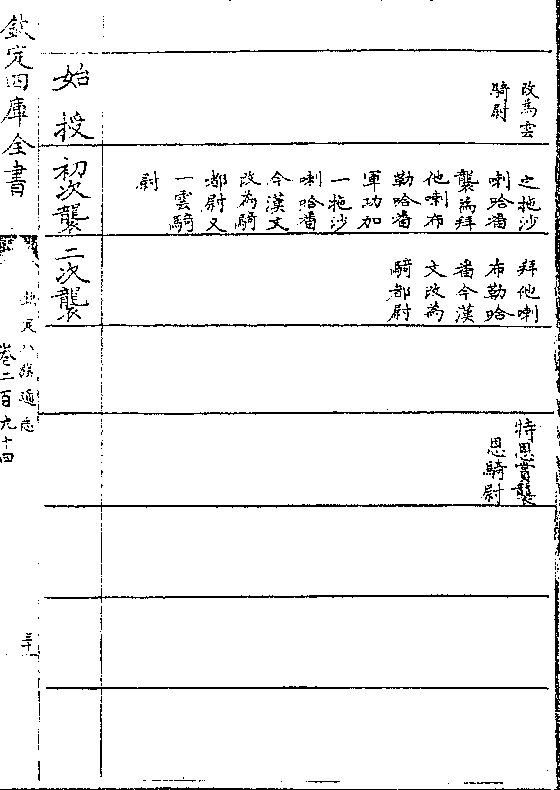 改為雲
騎尉
之拖沙
喇哈番
襲為拜
他喇布
勒哈番
軍功加
一拖沙
喇哈番
今漢文
改為騎
都尉又
一雲騎
尉
拜他喇
布勒哈
番今漢
文改為
騎都尉
特恩賞襲
恩騎尉
始授
初次襲
二次襲
欽定四庫全書
欽定八旗通志
卷二百九十四